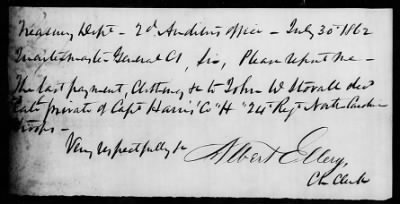 Treasury Dept - 2d Auditors office - July 30th 1862
Quartermaster General Ct, Sir, Please report me -
The last payment, Clothing &c to John W Stovall decd
late private of Capt Harris' Co "H" 24 Regt North Carolina
Troops -
Very respectfully &c
Albert Ellery,
Ch Clerk